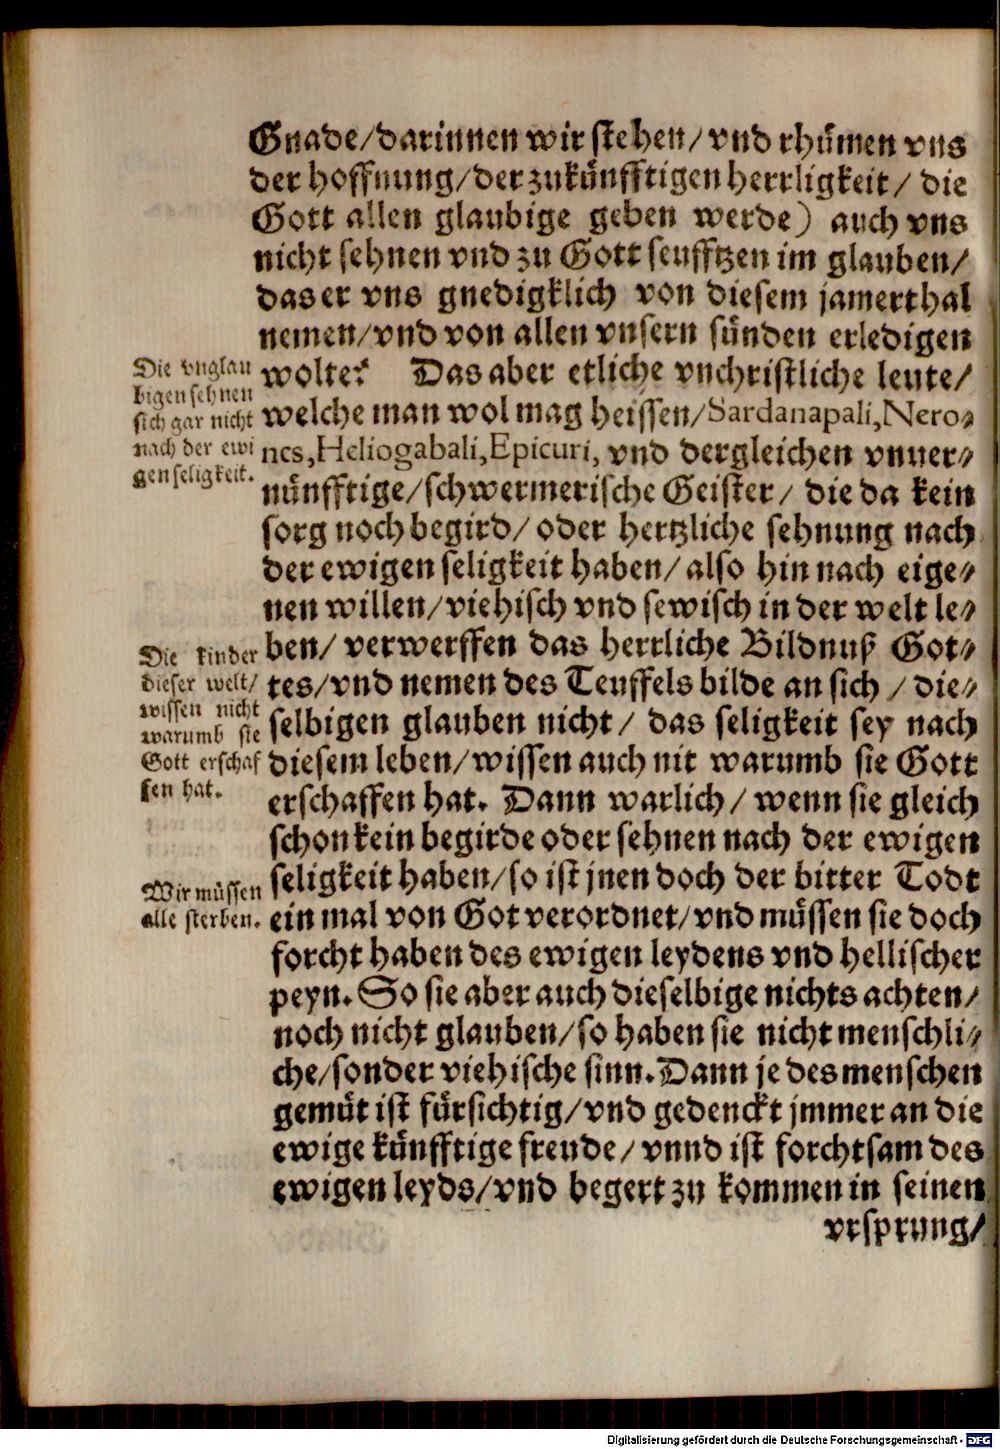 Gnade/darinnen wir stehen/vnd rhümen vns
der hoffnung/der zukünfftigen herrligkeit/ die
Gott allen glaubige geben werde) auch vns
nicht sehnen vnd zu Gott seufftzen im glauben/
das er vns gnedigklich von diesem jamerthal
nemen/vnd von allen vnsern sünden erledigen
wolte? Das aber etliche vnchristliche leute/
welche man wol mag heissen/Sardanapali,Nero⸗
nes,Heliogabali,Epicuri, vnd dergleichen vnuer⸗
nünfftige/schwermerische Geister/ die da kein
sorg noch begird/ oder hertzliche sehnung nach
der ewigen seligkeit haben/ also hin nach eige⸗
nen willen/viehisch vnd sewisch in der welt le⸗
ben/ verwerffen das herrliche Bildnuß Got⸗
tes/vnd nemen des Teuffels bilde an sich / die⸗
selbigen glauben nicht/ das seligkeit sey nach
diesem leben/wissen auch nit warumb sie Gott
erschaffen hat. Dann warlich/ wenn sie gleich
schon kein begirde oder sehnen nach der ewigen
seligkeit haben/so ist jnen doch der bitter Todt
ein mal von Got verordnet/vnd müssen sie doch
forcht haben des ewigen leydens vnd hellischer
peyn. So sie aber auch dieselbige nichts achten/
noch nicht glauben/so haben sie nicht menschli⸗
che/sonder viehische sinn. Dann je des menschen
gemüt ist fürsichtig/vnd gedenckt jmmer an die
ewige künfftige freude/ vnnd ist forchtsam des
ewigen leyds/vnd begert zu kommen in seinen
vrsprung/
Die vnglau
bigen sehnen
sich gar nicht
nach der ewi
gen seligkeit.
Die kinder
dieser welt/
wissen nicht
warumb sie
Gott erschaf
fen hat.
Wir müssen
alle sterben.
Digitalisierung gefördert durch die Deutsche Forschungsgemeinschaft - DFG